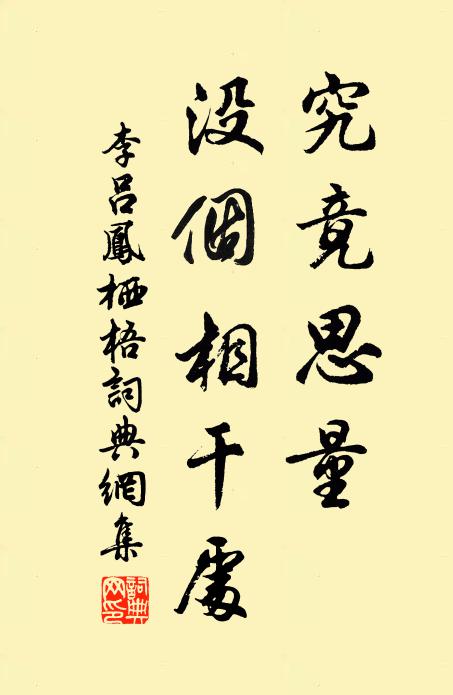 究竟思量
没個相干處
李吕鳳栖梧詞典網集
詞典网印